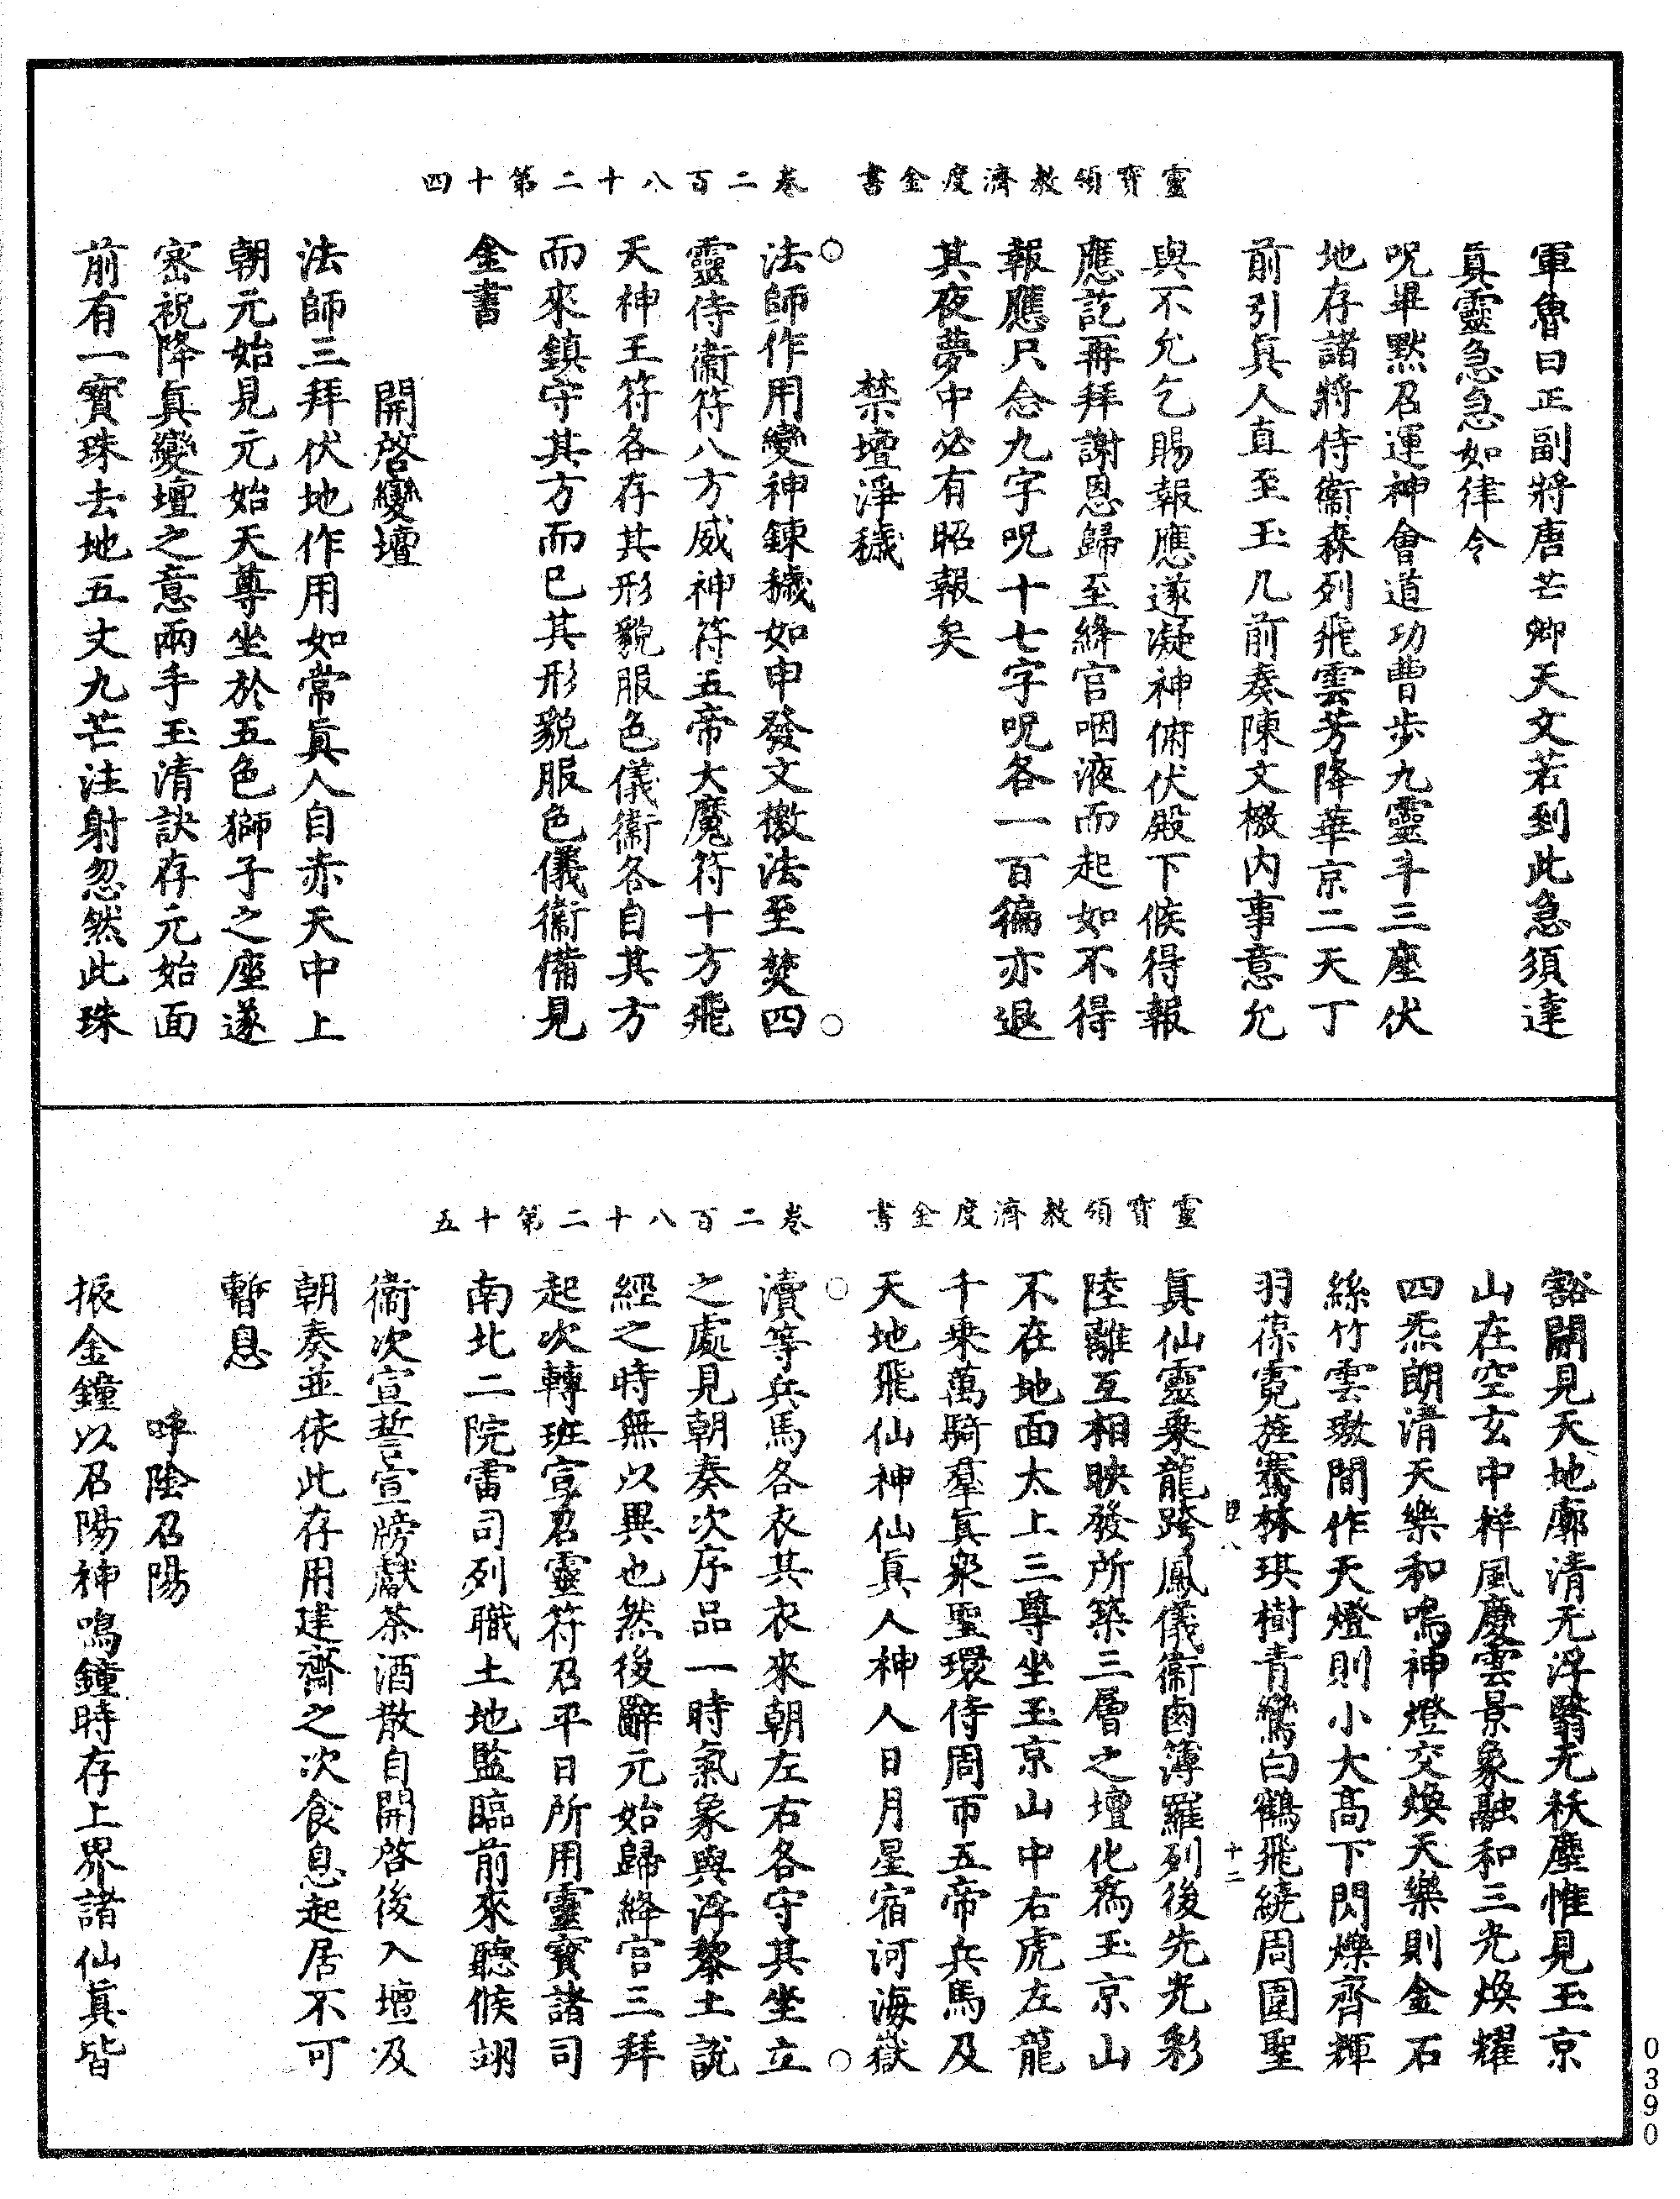 靈寶領教濟度金書　卷二百八十二第十四
軍魯曰正副將唐芒卿天文若到此急須達
眞靈急急如律令
呪畢默召運神會道功曹步九靈斗三座伏
地存諸將侍衞森列飛雲芳降華京二天丁
前引眞人直至玉几前奏陳文檄內事意允
與不允乞賜報應遂凝神俯伏殿下候得報
應訖再拜謝恩歸至絳宮咽液而起如不得
報應只念九字呪十七字呪各一百徧亦退
其夜夢中必有昭報矣
禁壇淨穢
法師作用變神鍊穢如申發文檄法至焚四
靈侍衞符八方威神符五帝大魔符十方飛
天神王符各存其形貌服色儀衞各自其方
而來鎮守其方而已其形貌服色儀衞備見
金書
開啓變壇
法師三拜伏地作用如常眞人自赤天中上
朝元始見元始天尊坐於五色獅子之座遂
密祝降眞變壇之意兩手玉清訣存元始面
前有一寶珠去地五丈九芒注射忽然此珠
靈寶領教濟度金書　卷二百八十二第十五
豁開見天地廓清无浮翳无袄塵惟見玉京
山在空玄中祥風慶雲景象融和三光煥耀
四炁朗清天樂和鳴神燈交煥天樂則金石
絲竹雲璈間作天燈則小大高下閃爍齊輝
羽葆霓旌騫林琪樹青鸞白鶴飛繞周圍聖
八　十二
眞仙靈乘龍跨鳳儀衞鹵簿羅列後先光彩
陸離互相映發所築三層之壇化爲玉京山
不在地面太上三尊坐玉京山中右虎左龍
千乘萬騎羣眞衆聖環侍周帀五帝兵馬及
天地飛仙神仙眞人神人日月星宿河海嶽
瀆等兵馬各衣其衣來朝左右各守其坐立
之處見朝奏次序品一時氣象與浮黎土說
經之時無以異也然後辭元始歸絳宮三拜
起次轉班宣召靈符召平日所用靈寶諸司
南北二院雷司列職土地監臨前來聽候翊
衞次宣誓宣牓獻茶酒散自開啓後入壇及
朝奏並依此存用建齋之次食息起居不可
暫息
呼陰召陽
振金鐘以召陽神鳴鐘時存上界諸仙眞皆
0390